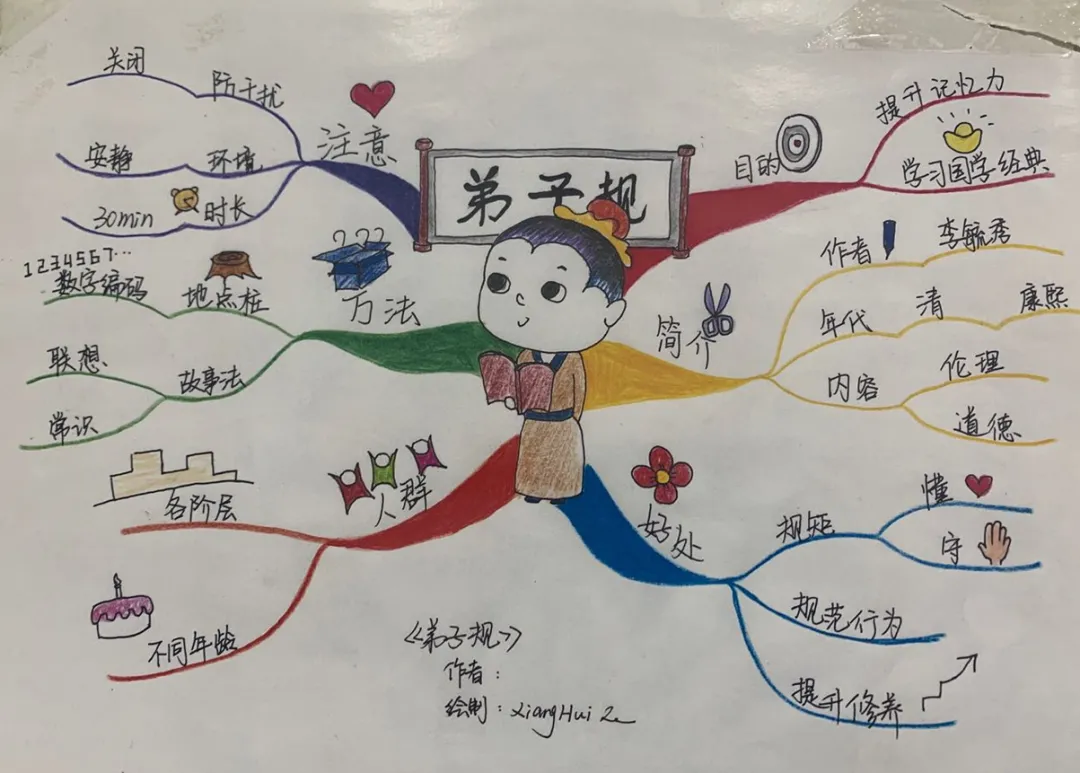 弟子规
目的
提升记忆力
学习国学经典
简介
作者
李毓秀
年代
清
康熙
内容
伦理
道德
好处
规矩
懂
守
规范行为
提升修养
人群
各阶层
不同年龄
方法
地点桩
1234567...
数字编码
故事法
联想
常识
注意
防干扰
关闭
环境
安静
时长
30min
???
《弟子规》
作者：
绘制：XiangHui Ze